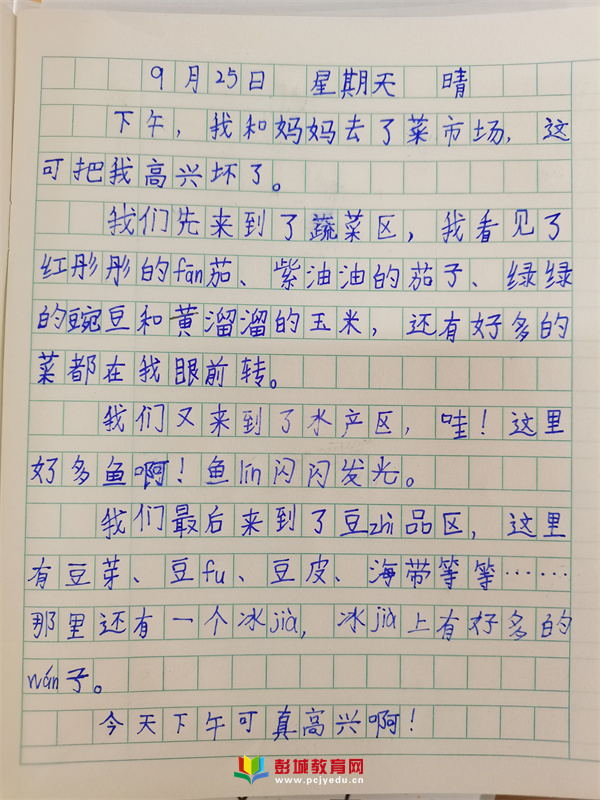 9月25日 星期天 晴
下午，我和妈妈去了菜市场，这
可把我高兴坏了。
我们先来到了蔬菜区，我看见了
红彤彤的fān茄、紫油油的茄子、绿绿
的豌豆和黄溜溜的玉米，还有好多的
菜都在我眼前转。
我们又来到了水产区，哇！这里
好多鱼啊！鱼lín闪闪发光。
我们最后来到了豆zhì品区，这里
有豆芽、豆fu、豆皮、海带等等……
那里还有一个冰jià，冰jià上有好多的
wán子。
今天下午可真高兴啊！
彭城教育网
www.pcjyedu.cn